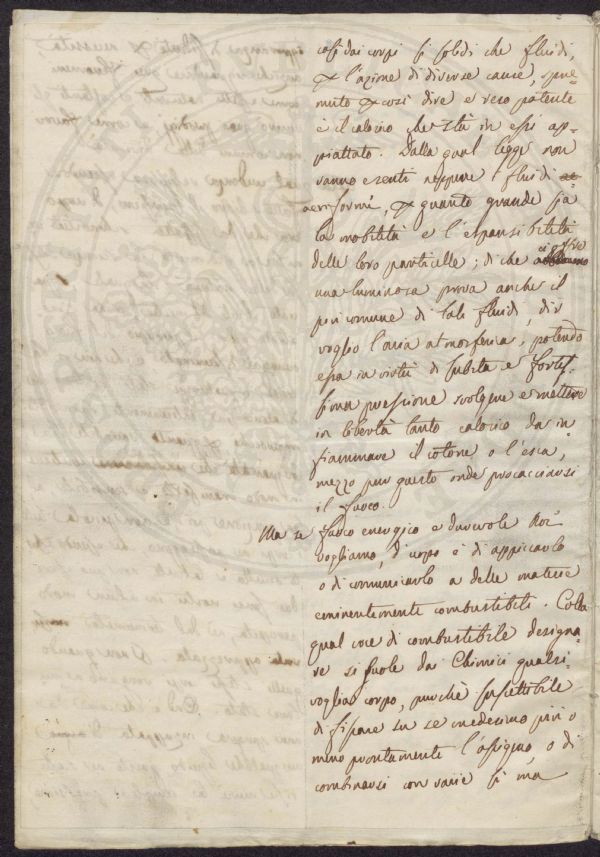 così dai corpi sì solidi che fluidi,
l'azione di diverse cause, spre-
muto così dire e reso potente
è il calorico che stà in essi ap-
piattato. Dalla qual legge non
vanno esenti neppure i fluidi ae-
aeriformi, quanto grande sia
la mobilità e l'espansibilità
delle loro particelle; di che ci offre
una luminosa prova anche il
più comune di tali fluidi, dir
voglio l'aria atmosferica, potendo
essa in virtù di subita e fortis-
sima pressione svolgere e mettere
in libertà tanto calorico da in
fiammare il cotone o l'esca,
mezzo pur questo onde procacciarsi
il fuoco.
Ma se fuoco energico e durevole Noi
vogliamo, d'uopo è di appiccarlo
o di comunicarlo a delle materie
eminentemente combustibili. Colla
qual voce di combustibile designa-
re si suole dai Chimici qualsi-
voglia corpo, purchè suscettibile
di fissare su se medesimo più o
meno prontamente l'ossigeno, o di
combinarsi con varie si ma